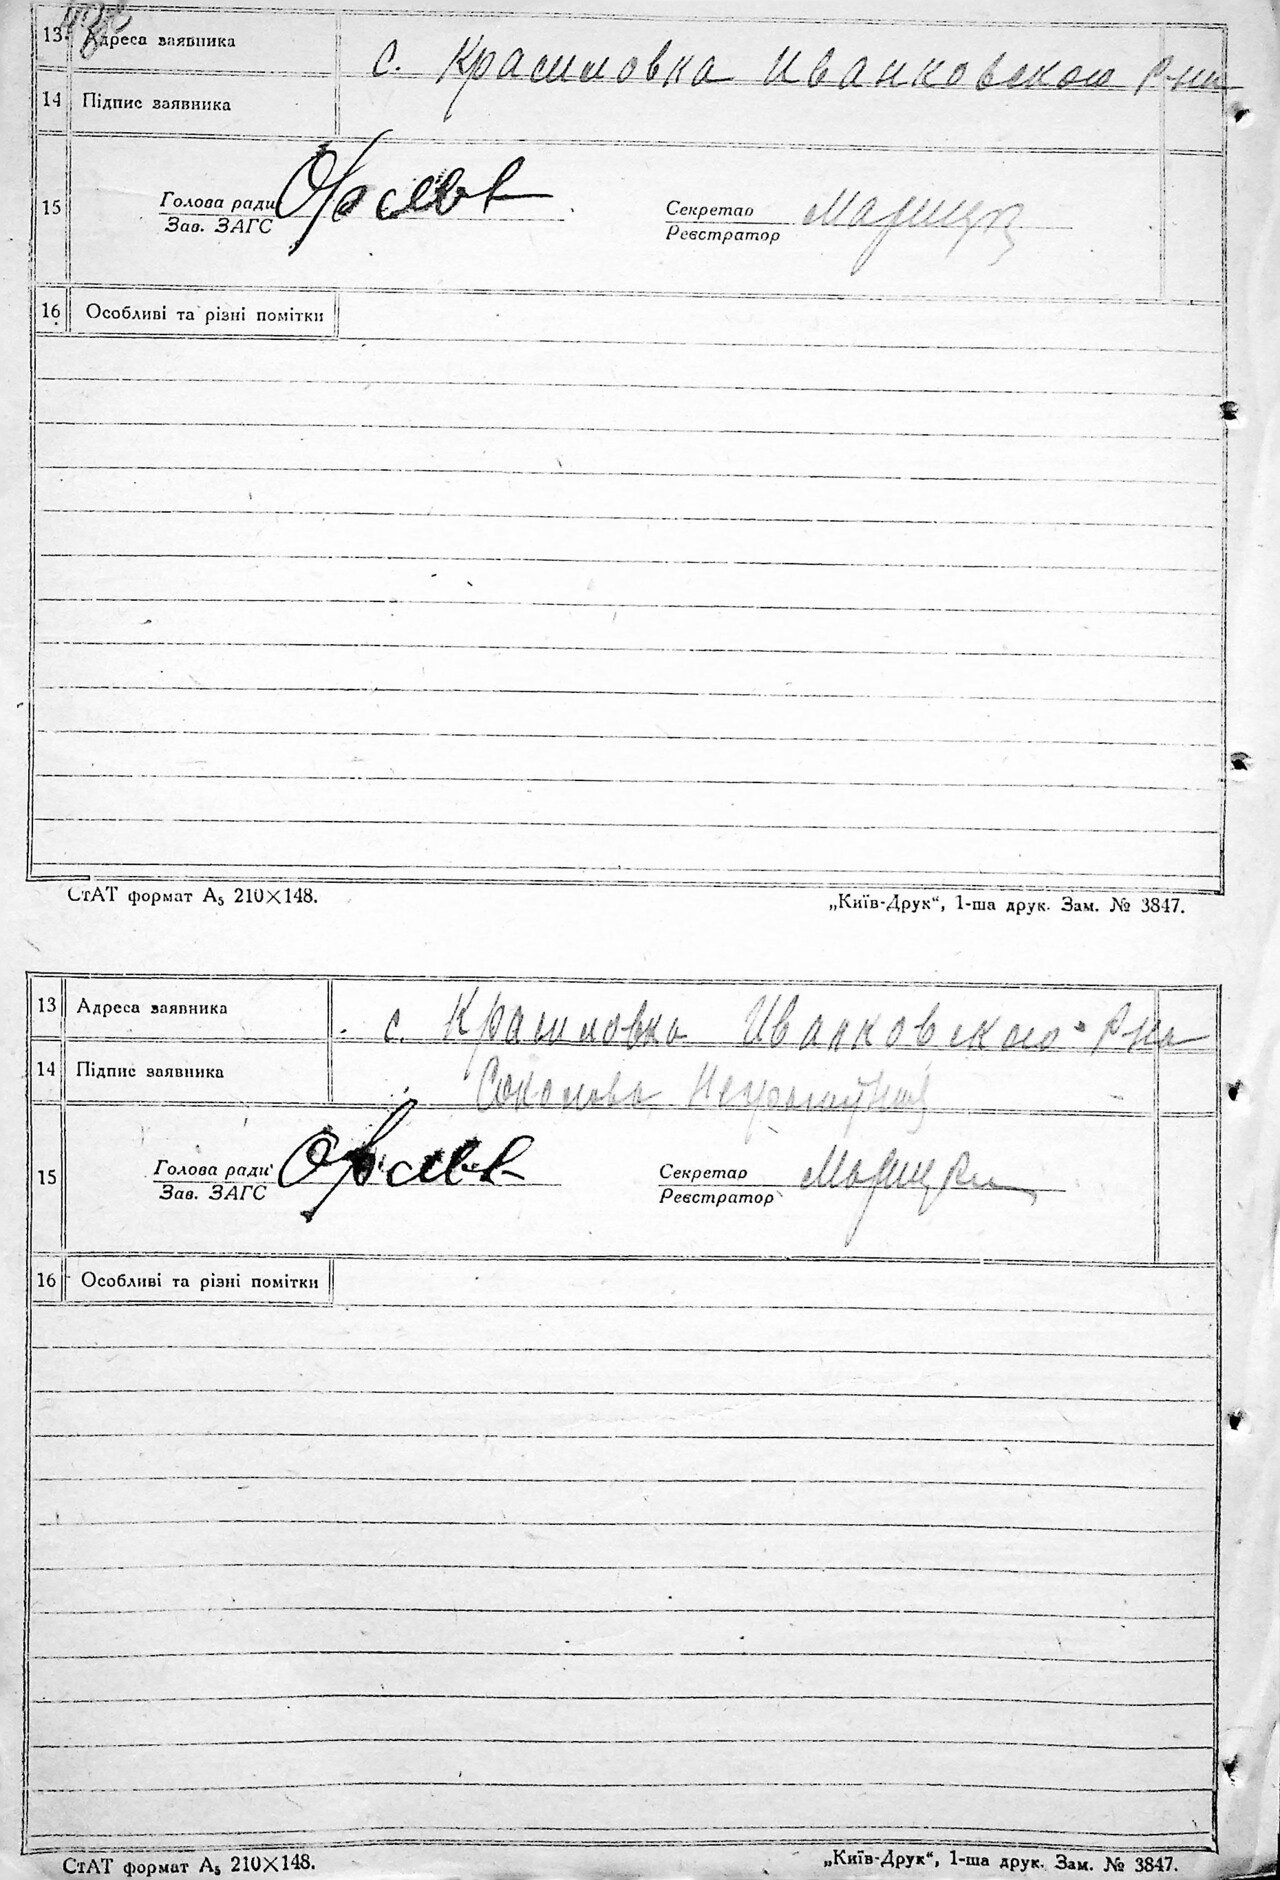 13 Адреса заявника с. Красиловка Иванковского Р-на
14 Підпис заявника
15 Голова ради Секретар
Зав. ЗАГС Реєстратор
16 Особливі та різні помітки
СтАТ формат А5 210×148. „Київ-Друк“, 1-ша друк. Зам. № 3847.
13 Адреса заявника с. Красиловка Иванковского Р-на
14 Підпис заявника Соколова
15 Голова ради Секретар
Зав. ЗАГС Реєстратор
16 Особливі та різні помітки
СтАТ формат А5 210×148. „Київ-Друк“, 1-ша друк. Зам. № 3847.